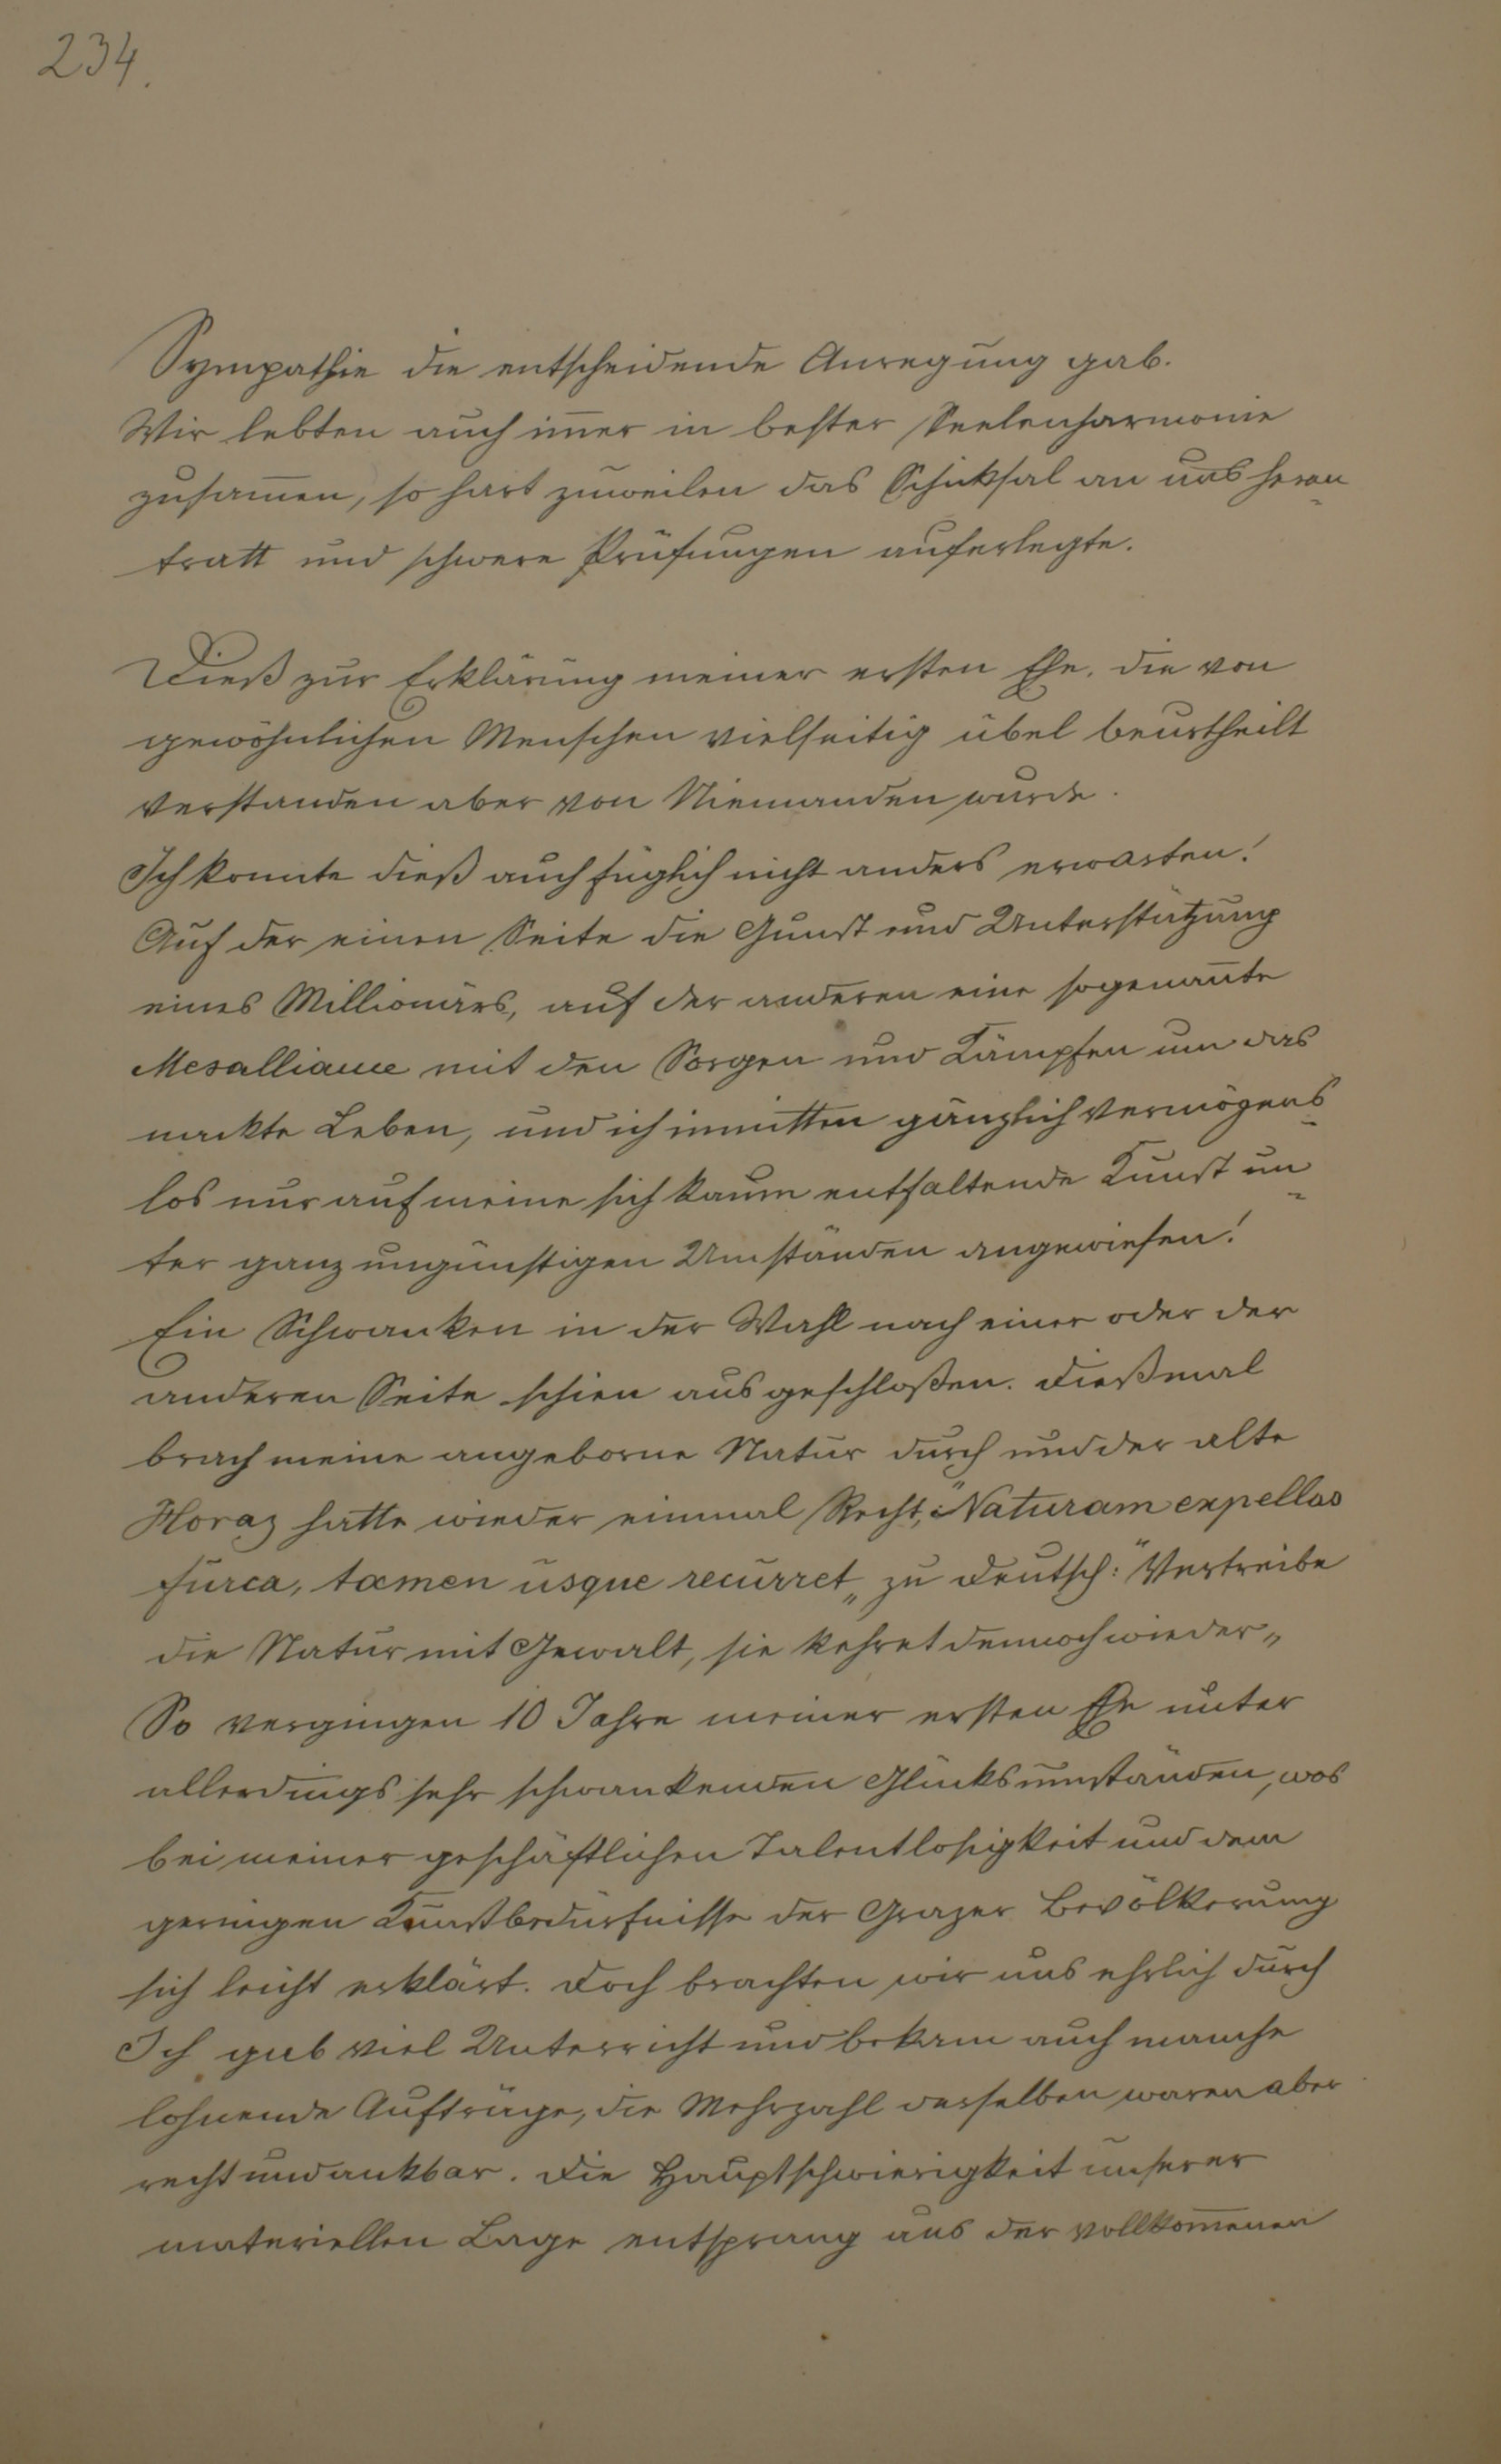 234.
Sympathie die entscheidende Anregung gab.
Wir lebten auch im̄er in bester Seelenharmonie
zusam̄en, so hart zuweilen das Schicksal an uns heran-
tratt und schwere Prüfungen auferlegte.
Dieß zur Erklärung meiner ersten Ehe, die von
gewöhnlichen Menschen vielseitig übel beurtheilt
verstanden aber von Niemanden wurde.
Ich konnte dieß auch füglich nicht anders erwarten!
Auf der einen Seite die Gunst und Unterstützung
eines Millionärs, auf der anderen eine sogenan̄te
Mesalliance mit den Sorgen und Kämpfen um das
nackte Leben, und ich inmitten gänzlich vermögens-
los nur auf meine sich kaum entfaltende Kunst un-
ter ganz ungünstigen Umständen angewiesen!
Ein Schwanken in der Wahl nach einer oder der
anderen Seite schien ausgeschloßen. Dießmal
brach meine angeborne Natur durch und der alte
Horaz hatte wieder einmal Recht: "Naturam expellas
furca, tamen usque recurret„ zu deutsch: "Vertreibe
die Natur mit Gewalt, sie kehret dennoch wieder„
So vergingen 10 Jahre meiner ersten Ehe unter
allerdings sehr schwankenden Glücksumständen, was
bei meiner geschäftlichen Talentlosigkeit und dem
geringen Kunstbedürfnisse der Grazer Bevölkerung
sich leicht erklärt. Doch brachten wir uns ehrlich durch
Ich gab viel Unterricht und bekam auch manche
lohnende Aufträge, die Mehrzahl derselben waren aber
recht undankbar. Die Hauptschwierigkeit unserer
materiellen Lage entsprang aus der vollkom̄enen